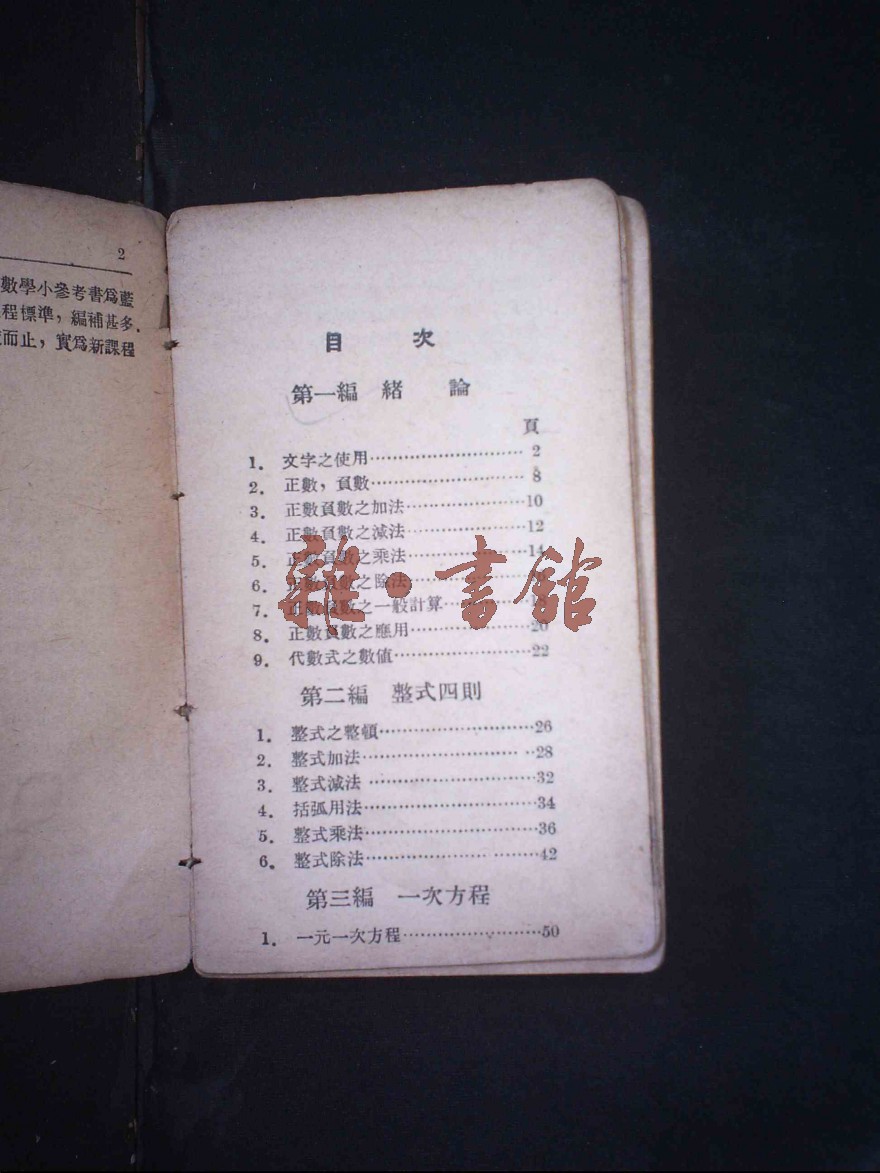 2
數學小參考書爲藍
程標準，編補甚多，
而止，實爲新課程
目 次
第一編 緒 論
頁
1. 文字之使用 2
2. 正數，負數 8
3. 正數負數之加法 10
4. 正數負數之減法 12
5. 正數負數之乘法 14
6. 正數負數之除法
7. 正數負數之一般計算
8. 正數負數之應用 20
9. 代數式之數值 22
第二編 整式四則
1. 整式之整頓 26
2. 整式加法 28
3. 整式減法 32
4. 括弧用法 34
5. 整式乘法 36
6. 整式除法 42
第三編 一次方程
1. 一元一次方程 50
雜·書館